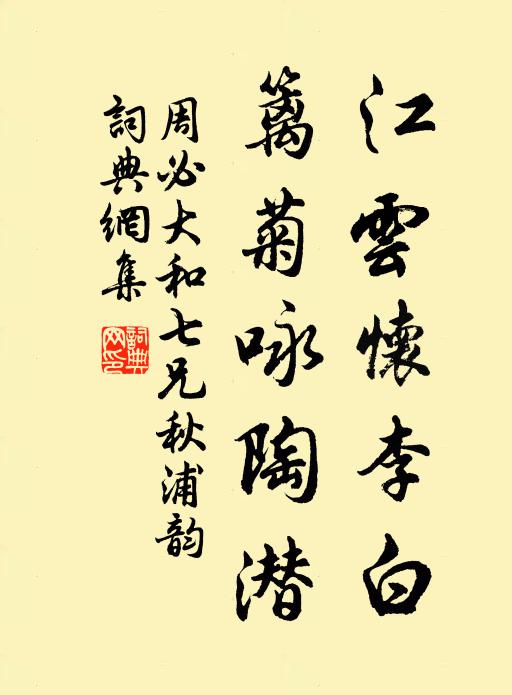 江雲懷李白
籬菊咏陶潜
周必大和七兄秋浦韵
詞典網集
詞典網印